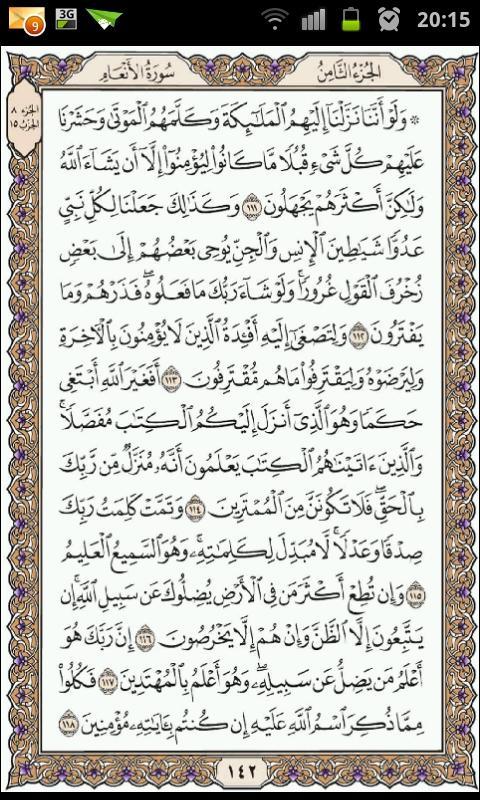 9
3G
20:15
الجزء الثامن
سورة الأنعام
الجزء ٨
الحزب ١٥
۞ وَلَوْ أَنَّنَا نَزَّلْنَا إِلَيْهِمُ الْمَلَٰٓئِكَةَ وَكَلَّمَهُمُ الْمَوْتَىٰ وَحَشَرْنَا
عَلَيْهِمْ كُلَّ شَىْءٍ قُبُلًا مَّا كَانُوا۟ لِيُؤْمِنُوٓا۟ إِلَّآ أَن يَشَآءَ اللَّهُ
وَلَٰكِنَّ أَكْثَرَهُمْ يَجْهَلُونَ ١١١ وَكَذَٰلِكَ جَعَلْنَا لِكُلِّ نَبِىٍّ
عَدُوًّا شَيَٰطِينَ الْإِنسِ وَالْجِنِّ يُوحِى بَعْضُهُمْ إِلَىٰ بَعْضٍ
زُخْرُفَ الْقَوْلِ غُرُورًا ۚ وَلَوْ شَآءَ رَبُّكَ مَا فَعَلُوهُ ۖ فَذَرْهُمْ وَمَا
يَفْتَرُونَ ١١٢ وَلِتَصْغَىٰٓ إِلَيْهِ أَفْـِٔدَةُ الَّذِينَ لَا يُؤْمِنُونَ بِالْءَاخِرَةِ
وَلِيَرْضَوْهُ وَلِيَقْتَرِفُوا۟ مَا هُم مُّقْتَرِفُونَ ١١٣ أَفَغَيْرَ اللَّهِ أَبْتَغِى
حَكَمًا وَهُوَ الَّذِىٓ أَنزَلَ إِلَيْكُمُ الْكِتَٰبَ مُفَصَّلًا ۚ
وَالَّذِينَ ءَاتَيْنَٰهُمُ الْكِتَٰبَ يَعْلَمُونَ أَنَّهُۥ مُنَزَّلٌ مِّن رَّبِّكَ
بِالْحَقِّ ۖ فَلَا تَكُونَنَّ مِنَ الْمُمْتَرِينَ ١١٤ وَتَمَّتْ كَلِمَتُ رَبِّكَ
صِدْقًا وَعَدْلًا ۚ لَّا مُبَدِّلَ لِكَلِمَٰتِهِۦ ۚ وَهُوَ السَّمِيعُ الْعَلِيمُ
١١٥ وَإِن تُطِعْ أَكْثَرَ مَن فِى الْأَرْضِ يُضِلُّوكَ عَن سَبِيلِ اللَّهِ ۚ إِن
يَتَّبِعُونَ إِلَّا الظَّنَّ وَإِنْ هُمْ إِلَّا يَخْرُصُونَ ١١٦ إِنَّ رَبَّكَ هُوَ
أَعْلَمُ مَن يَضِلُّ عَن سَبِيلِهِۦ ۖ وَهُوَ أَعْلَمُ بِالْمُهْتَدِينَ ١١٧ فَكُلُوا۟
مِمَّا ذُكِرَ اسْمُ اللَّهِ عَلَيْهِ إِن كُنتُم بِـَٔايَٰتِهِۦ مُؤْمِنِينَ ١١٨
١٤٢